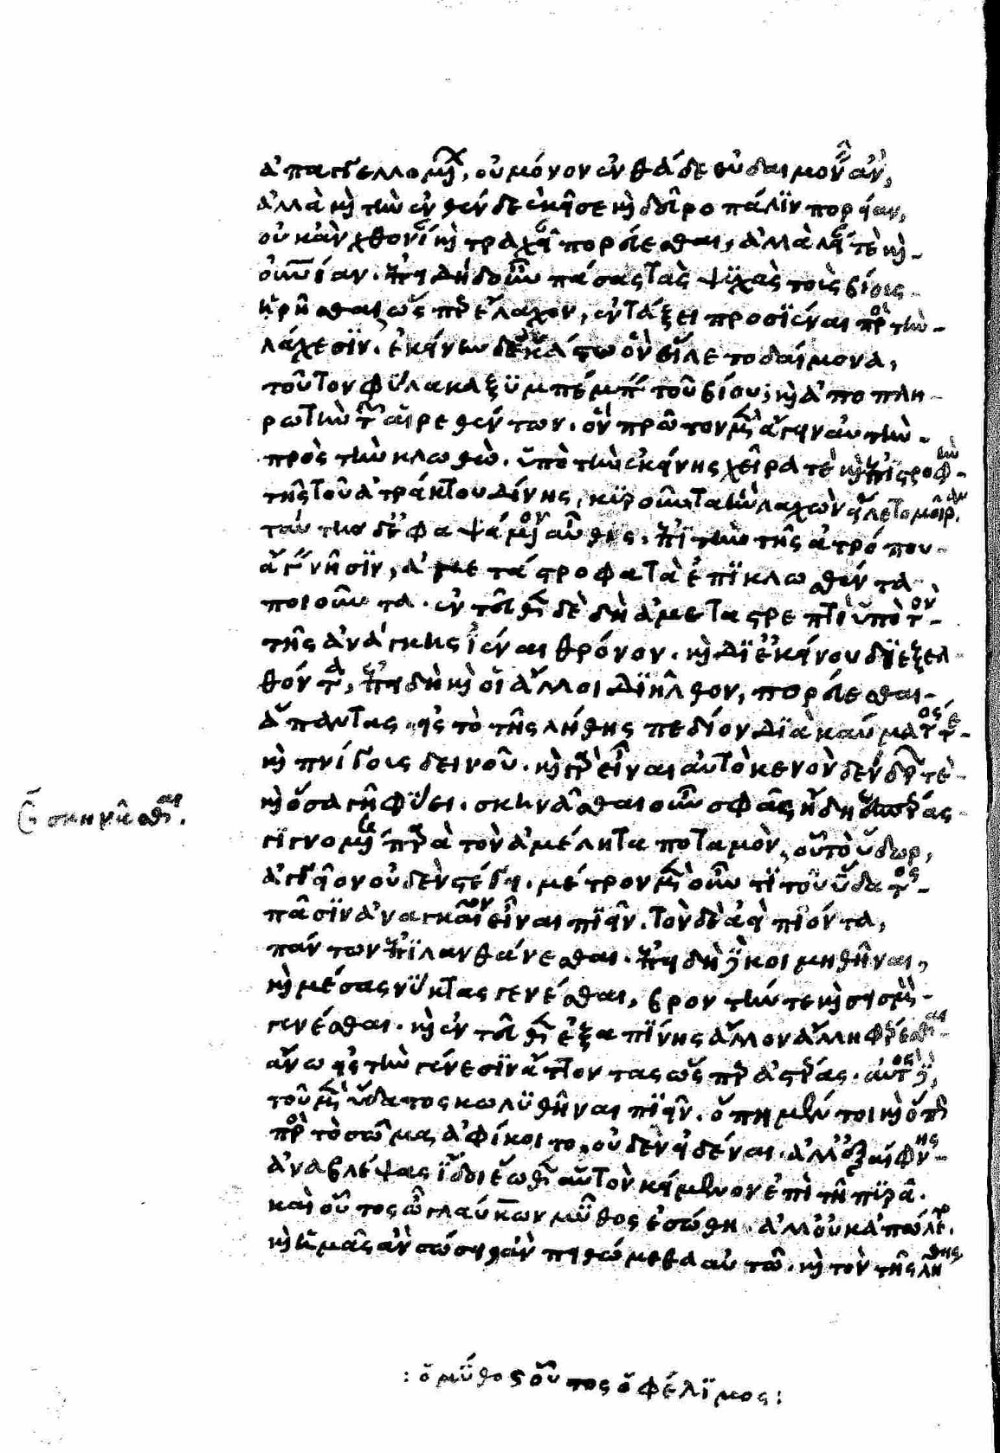 ἀπαγγελλομένων, οὐ μόνον ἐνθάδε εὐδαιμονεῖν ἂν,
ἀλλὰ καὶ τὴν ἐνθένδε ἐκεῖσε καὶ δεῦρο πάλιν πορείαν,
οὐκ ἂν χθονίαν καὶ τραχεῖαν πορεύεσθαι, ἀλλὰ λείαν τε καὶ
οὐρανίαν. ἐπειδὴ δ' οὖν πάσας τὰς ψυχὰς τοὺς βίους
ᾑρῆσθαι, ὥσπερ ἔλαχον, ἐν τάξει προσϊέναι πρὸς τὴν
λάχεσϊν. ἐκείνην δὲ ἑκάστω ὃν εἵλετο δαίμονα,
τοῦτον φύλακα ξϋμπέμπειν τοῦ βίου, καὶ ἀποπλη-
ρωτὴν τῶν αἱρεθέντων. ὃν πρῶτον μὲν ἄγειν αὐτὴν
πρὸς τὴν κλωθὼ. ὑπὸ τὴν ἐκείνης χεῖρα τε καὶ ἐπιστροφὴν
τῆς τοῦ ἀτράκτου δίνης, κϋροῦντα ἣν λαχὼν εἵλετο μοῖραν.
ταύτης δ' ἐφαψάμενον αὖθις. ἐπὶ τὴν τῆς ἀτρόπου
ἄγειν νῆσϊν, ἀμετάστροφα τὰ ἐπϊκλωσθέντα
ποιοῦντα. ἐντεῦθεν δὲ δὴ ἀμεταστρεπτὶ ὑπὸ τὸν
τῆς ἀνάγκης ἰέναι θρόνον. καὶ δϊ' ἐκείνου δϊεξελ-
θόντα, ἐπειδὴ καὶ οἱ ἄλλοι δϊῆλθον, πορεύεσθαι
ἅπαντας εἰς τὸ τῆς λήθης πεδίον δϊὰ καύματος τε
καὶ πνίγους δεινοῦ. καὶ γὰρ εἶναι αὐτὸ κενὸν δένδρων τε
καὶ ὅσα γῆ φϋει. σκηνᾶσθαι οὖν σφᾶς ἤδη ἑσπέρας
γϊγνομένης παρὰ τὸν ἀμέλητα ποταμὸν, οὗ τὸ ὕδωρ,
ἀγγεῖον οὐδὲν στέγειν. μέτρον μὲν οὖν τϊ τοῦ ὕδατος
πᾶσϊν ἀναγκαῖον εἶναι πιεῖν. τὸν δὲ ἀεὶ πιόντα,
πάντων ἐπϊλανθάνεσθαι. ἐπειδὴ δὲ κοιμηθῆναι,
καὶ μέσας νϋκτας γενέσθαι, βροντήν τε καὶ σεισμὸν
γενέσθαι. καὶ ἐντεῦθεν ἐξαπϊνης ἄλλον ἄλλη φέρεσθαι
ἄνω εἰς τὴν γένεσϊν ἄττοντας ὥσπερ ἀστέρας. αὐτὸς δὲ,
τοῦ μὲν ὕδατος κωλϋθῆναι πιεῖν. ὅπη μέντοι καὶ ὅπως
πρὸς τὸ σῶμα ἀφίκοιτο, οὐδὲν εἰδέναι. ἀλλ' ἐξαίφνης
ἀναβλέψας ἴδοι ἕωθεν αὑτὸν κείμενον ἐπὶ τῆ πϋρᾶ.
καὶ οὗτος ὦ γλαύκων μῦθος ἐσώθη. ἀλλ' οὐκ ἀπώλετο.
καὶ ἡμᾶς ἂν σώσειεν ἂν πειθώμεθα αὐτῶ. καὶ τὸν τῆς λήθης
σκηνεῖσθαι.
: ὁ μῦθος οὗτος ὀφέλϊμος :